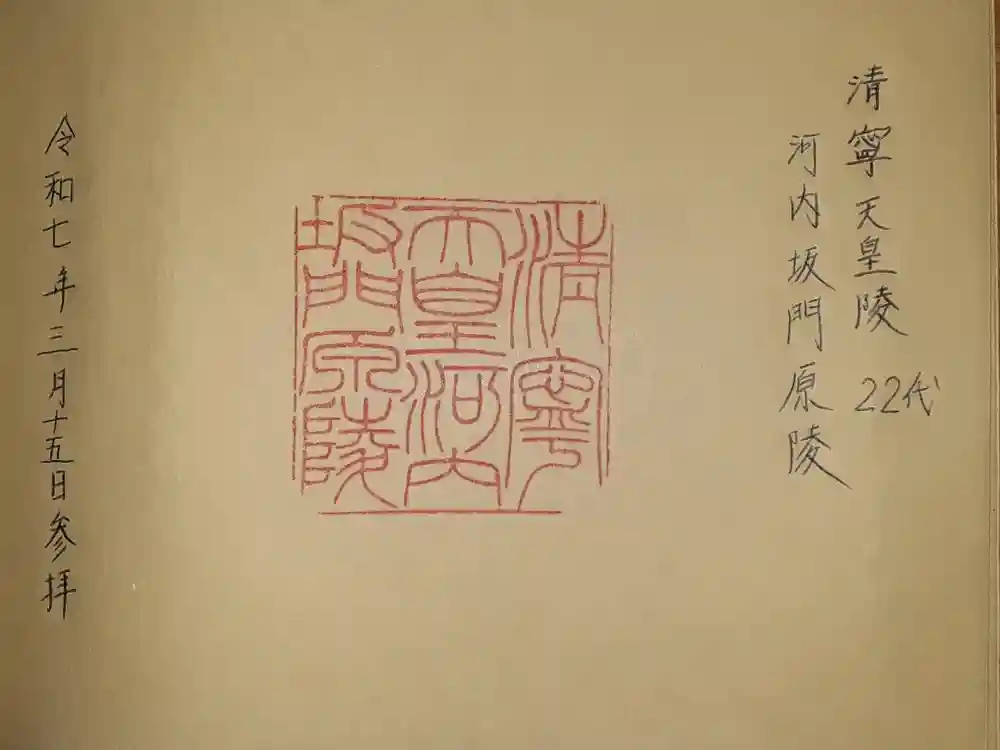 清寧天皇陵 22代
河内坂門原陵
清寧
天皇河内
坂門原陵
令和七年三月十五日参拝